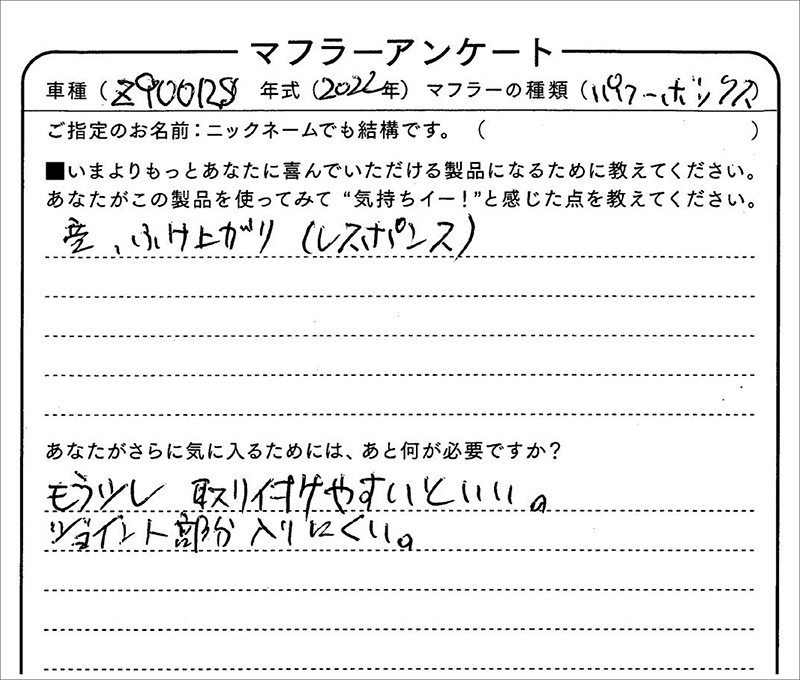 マフラーアンケート
車種（Z900RS 年式（2022年） マフラーの種類（パワーボックス）
ご指定のお名前：ニックネームでも結構です。（ ）
■いまよりもっとあなたに喜んでいただける製品になるために教えてください。
あなたがこの製品を使ってみて “気持ちイー！”と感じた点を教えてください。
音、ふけ上がり（レスポンス）
あなたがさらに気に入るためには、あと何が必要ですか？
もう少し 取り付けやすいといい。
ジョイント部分入りにくい。